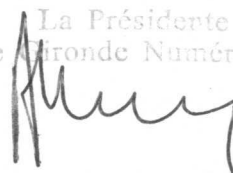 La Présidente
Gironde Numér